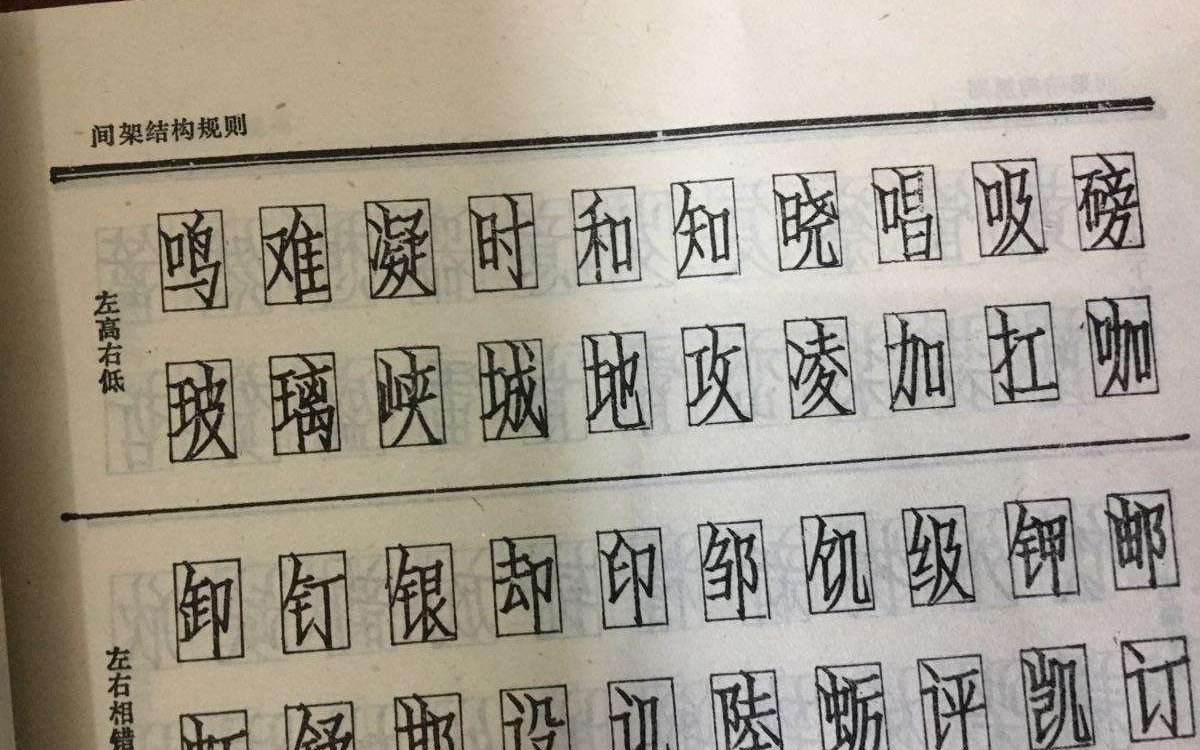 间架结构规则
左高右低
鸣难凝时和知晓唱吸磅
玻璃峡城地攻凌加扛咖
左右相错
卸钉银却印邹饥级钾邮
虹舒邯设讥陆蛎评凯订